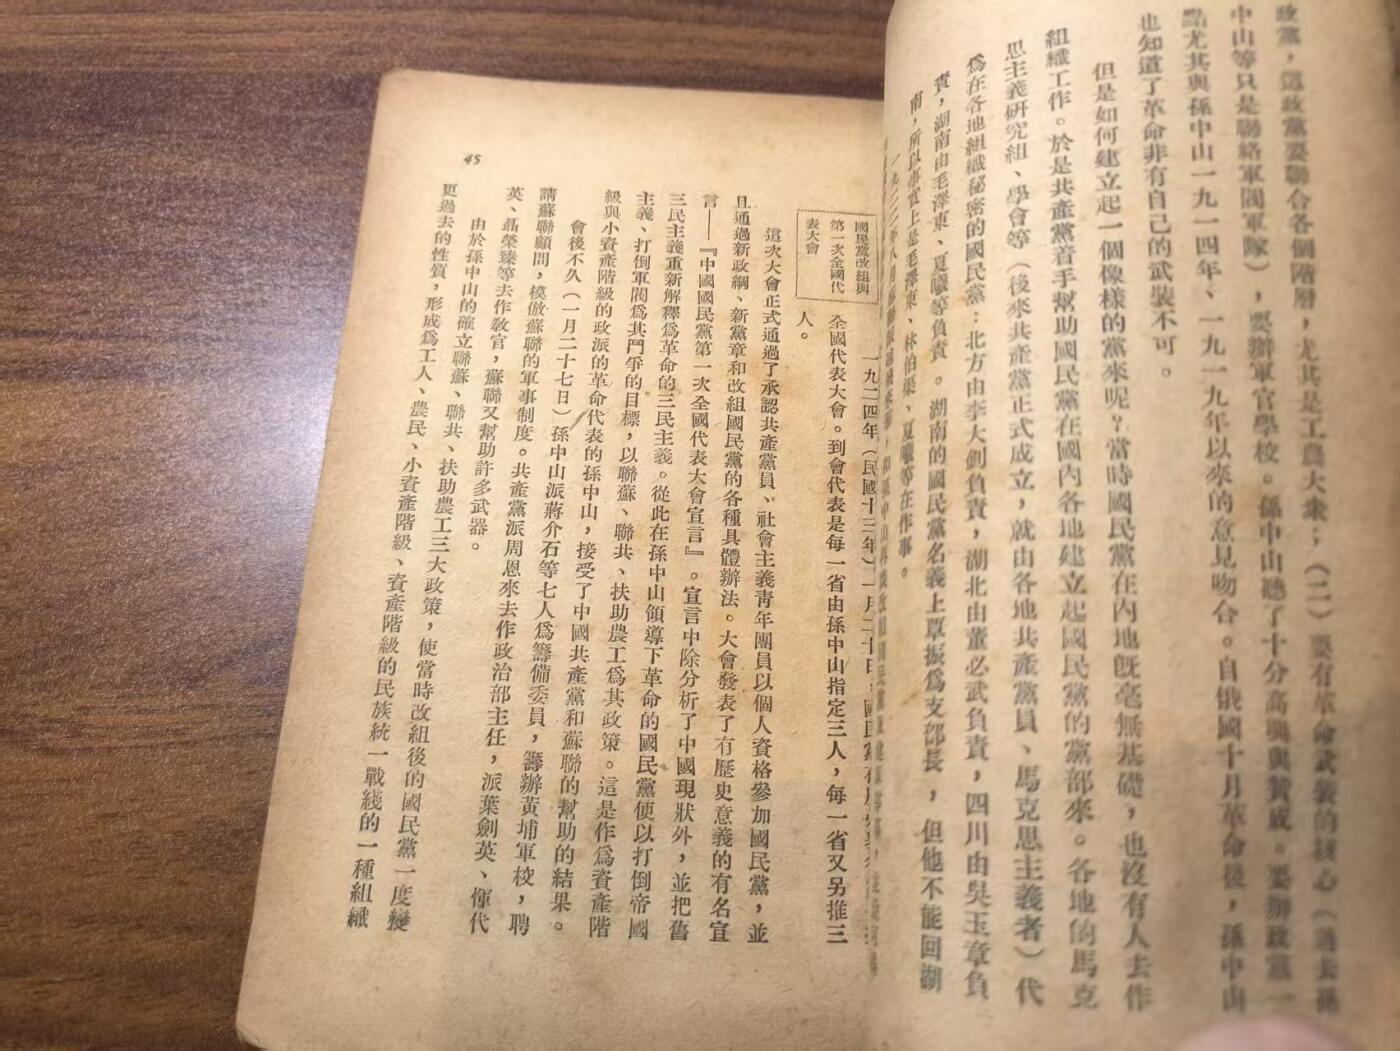 政黨，這政黨要聯合各個階層，尤其是工農大衆；（二）要有革命武裝的核心（過去孫
中山等只是聯絡軍閥軍隊），要辦軍官學校。孫中山聽了十分高興與贊成。要辦政黨一
點尤其與孫中山一九一四年、一九一九年以來的意見吻合。自俄國十月革命後，孫中山
也知道了革命非有自己的武裝不可。
但是如何建立起一個像樣的黨來呢？當時國民黨在內地既毫無基礎，也沒有人去作
組織工作。於是共產黨着手幫助國民黨在國內各地建立起國民黨的黨部來。各地的馬克
思主義研究組、學會等（後來共產黨正式成立，就由各地共產黨員、馬克思主義者）代
爲在各地組織秘密的國民黨：北方由李大釗負責，湖北由董必武負責，四川由吳玉章負
責，湖南由毛澤東、夏曦等負責。湖南的國民黨名義上覃振爲支部長，但他不能回湖
南，所以事實上是毛澤東、林伯渠、夏曦等在作事。
國民黨改組與
第一次全國代
表大會
一九二四年（民國十三年）一月二十日，國民黨
全國代表大會。到會代表是每一省由孫中山指定三人，每一省又另推三
人。
這次大會正式通過了承認共產黨員、社會主義青年團員以個人資格參加國民黨，並
且通過新政綱、新黨章和改組國民黨的各種具體辦法。大會發表了有歷史意義的有名宣
言——『中國國民黨第一次全國代表大會宣言』。宣言中除分析了中國現狀外，並把舊
三民主義重新解釋爲革命的三民主義。從此在孫中山領導下革命的國民黨便以打倒帝國
主義、打倒軍閥爲其鬥爭的目標，以聯蘇、聯共、扶助農工爲其政策。這是作爲資產階
級與小資產階級的政派的革命代表的孫中山，接受了中國共產黨和蘇聯的幫助的結果。
會後不久（一月二十七日）孫中山派蔣介石等七人爲籌備委員，籌辦黃埔軍校，聘
請蘇聯顧問，模倣蘇聯的軍事制度。共產黨派周恩來去作政治部主任，派葉劍英、惲代
英、聶榮臻等去作教官，蘇聯又幫助許多武器。
由於孫中山的確立聯蘇、聯共、扶助農工三大政策，使當時改組後的國民黨一度變
更過去的性質，形成爲工人、農民、小資產階級、資產階級的民族統一戰綫的一種組織
45